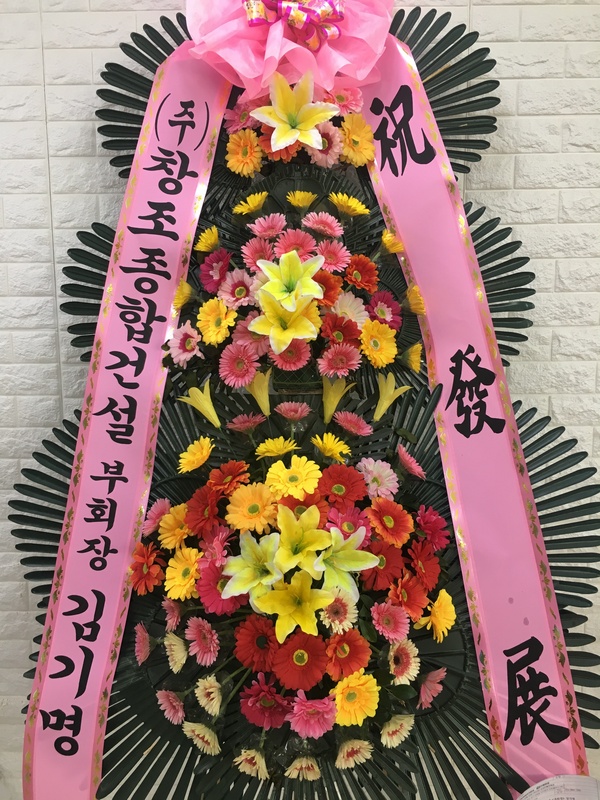 (주)창조종합건설 부회장 김기명
祝 發 展